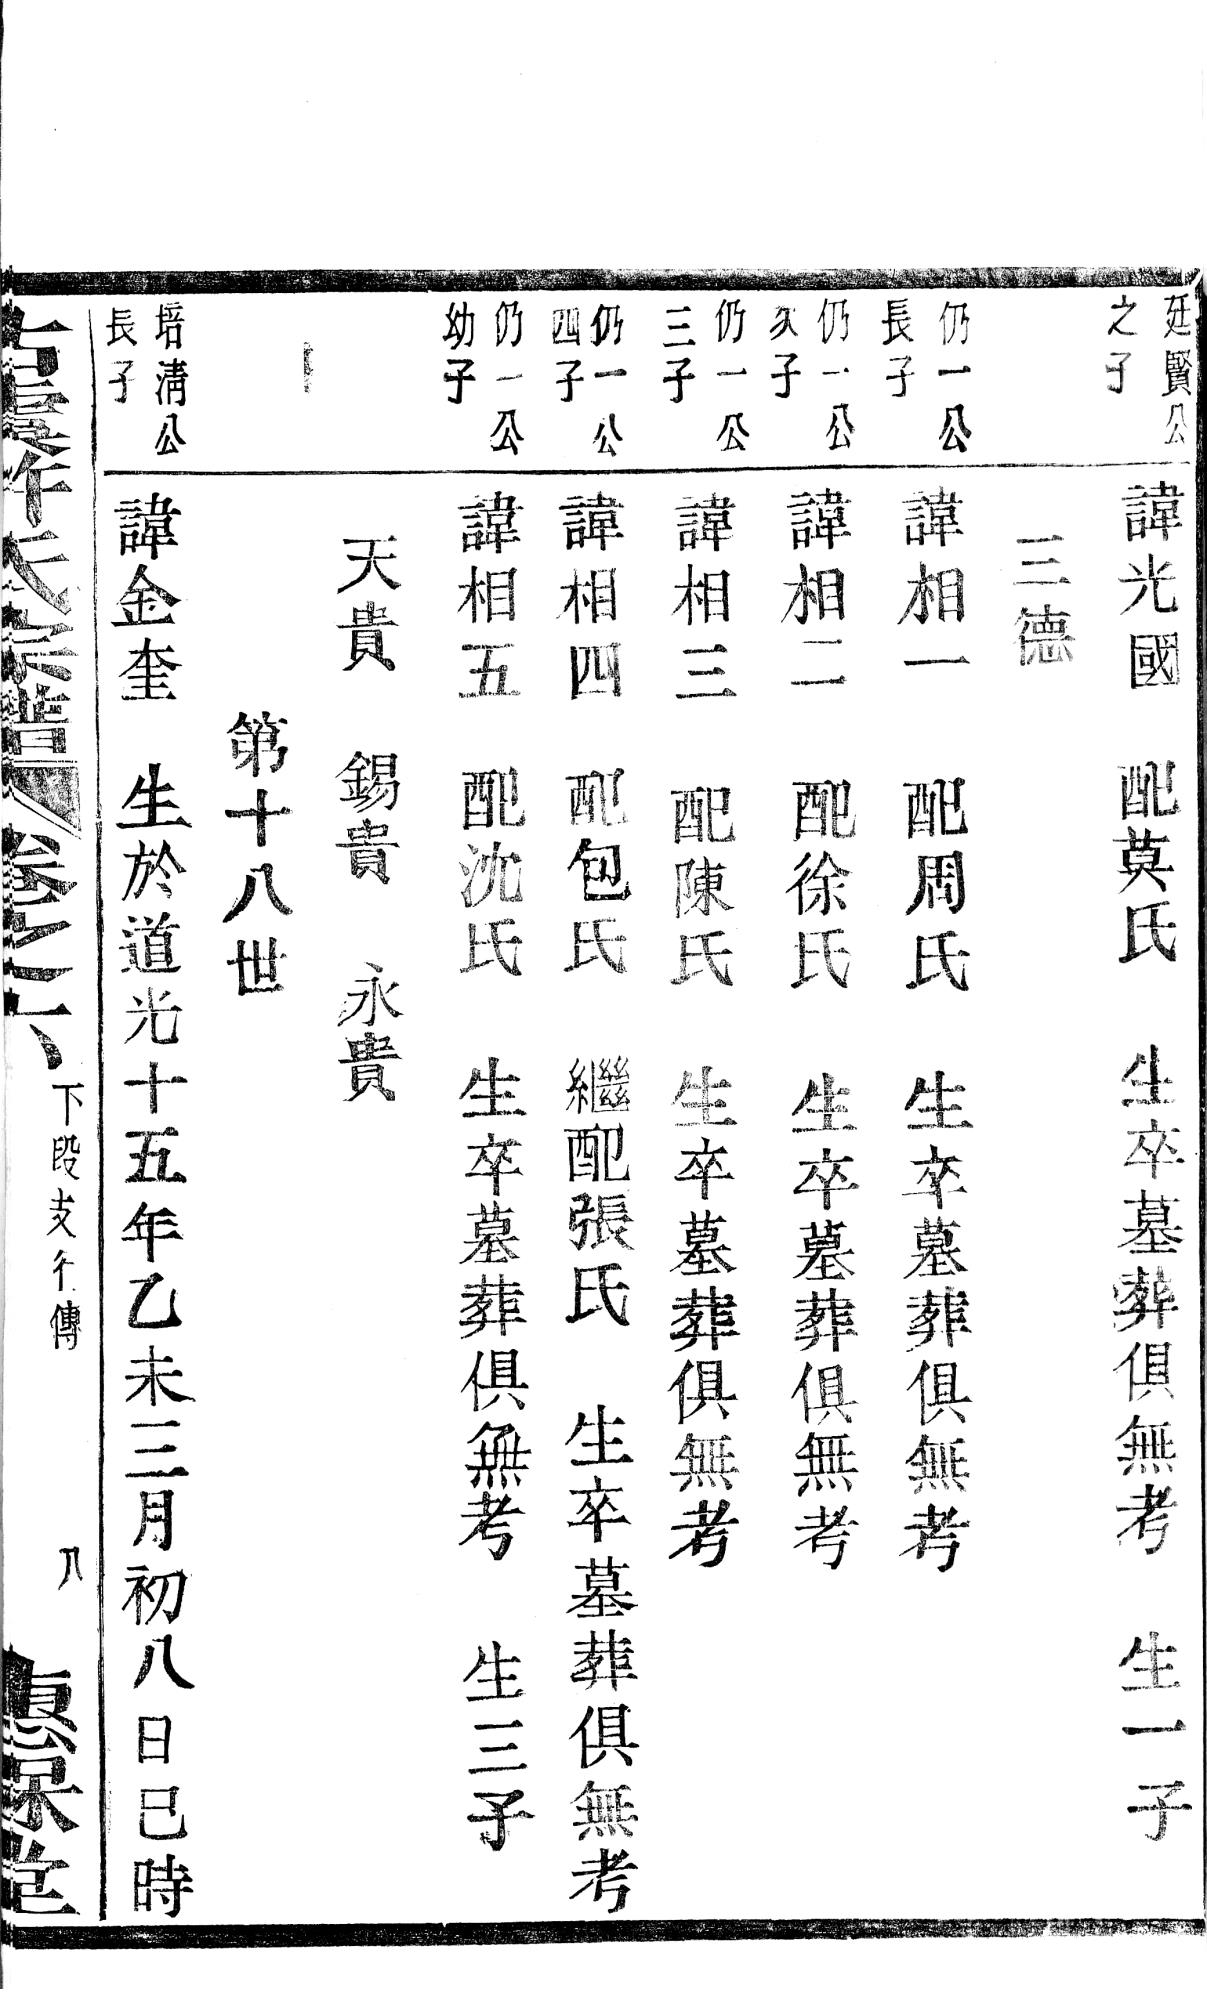 廷賢公
之子
諱光國 配莫氏 生卒墓葬俱無考 生一子
三德
仍一公
長子
諱相一 配周氏 生卒墓葬俱無考
仍一公
次子
諱相二 配徐氏 生卒墓葬俱無考
仍一公
三子
諱相三 配陳氏 生卒墓葬俱無考
仍一公
四子
諱相四 配包氏 繼配張氏 生卒墓葬俱無考
仍一公
幼子
諱相五 配沈氏 生卒墓葬俱無考 生三子
天貴 錫貴 永貴
第十八世
培清公
長子
諱金奎 生於道光十五年乙未三月初八日巳時
古虞許氏宗譜 卷之六 下段支行傳 八